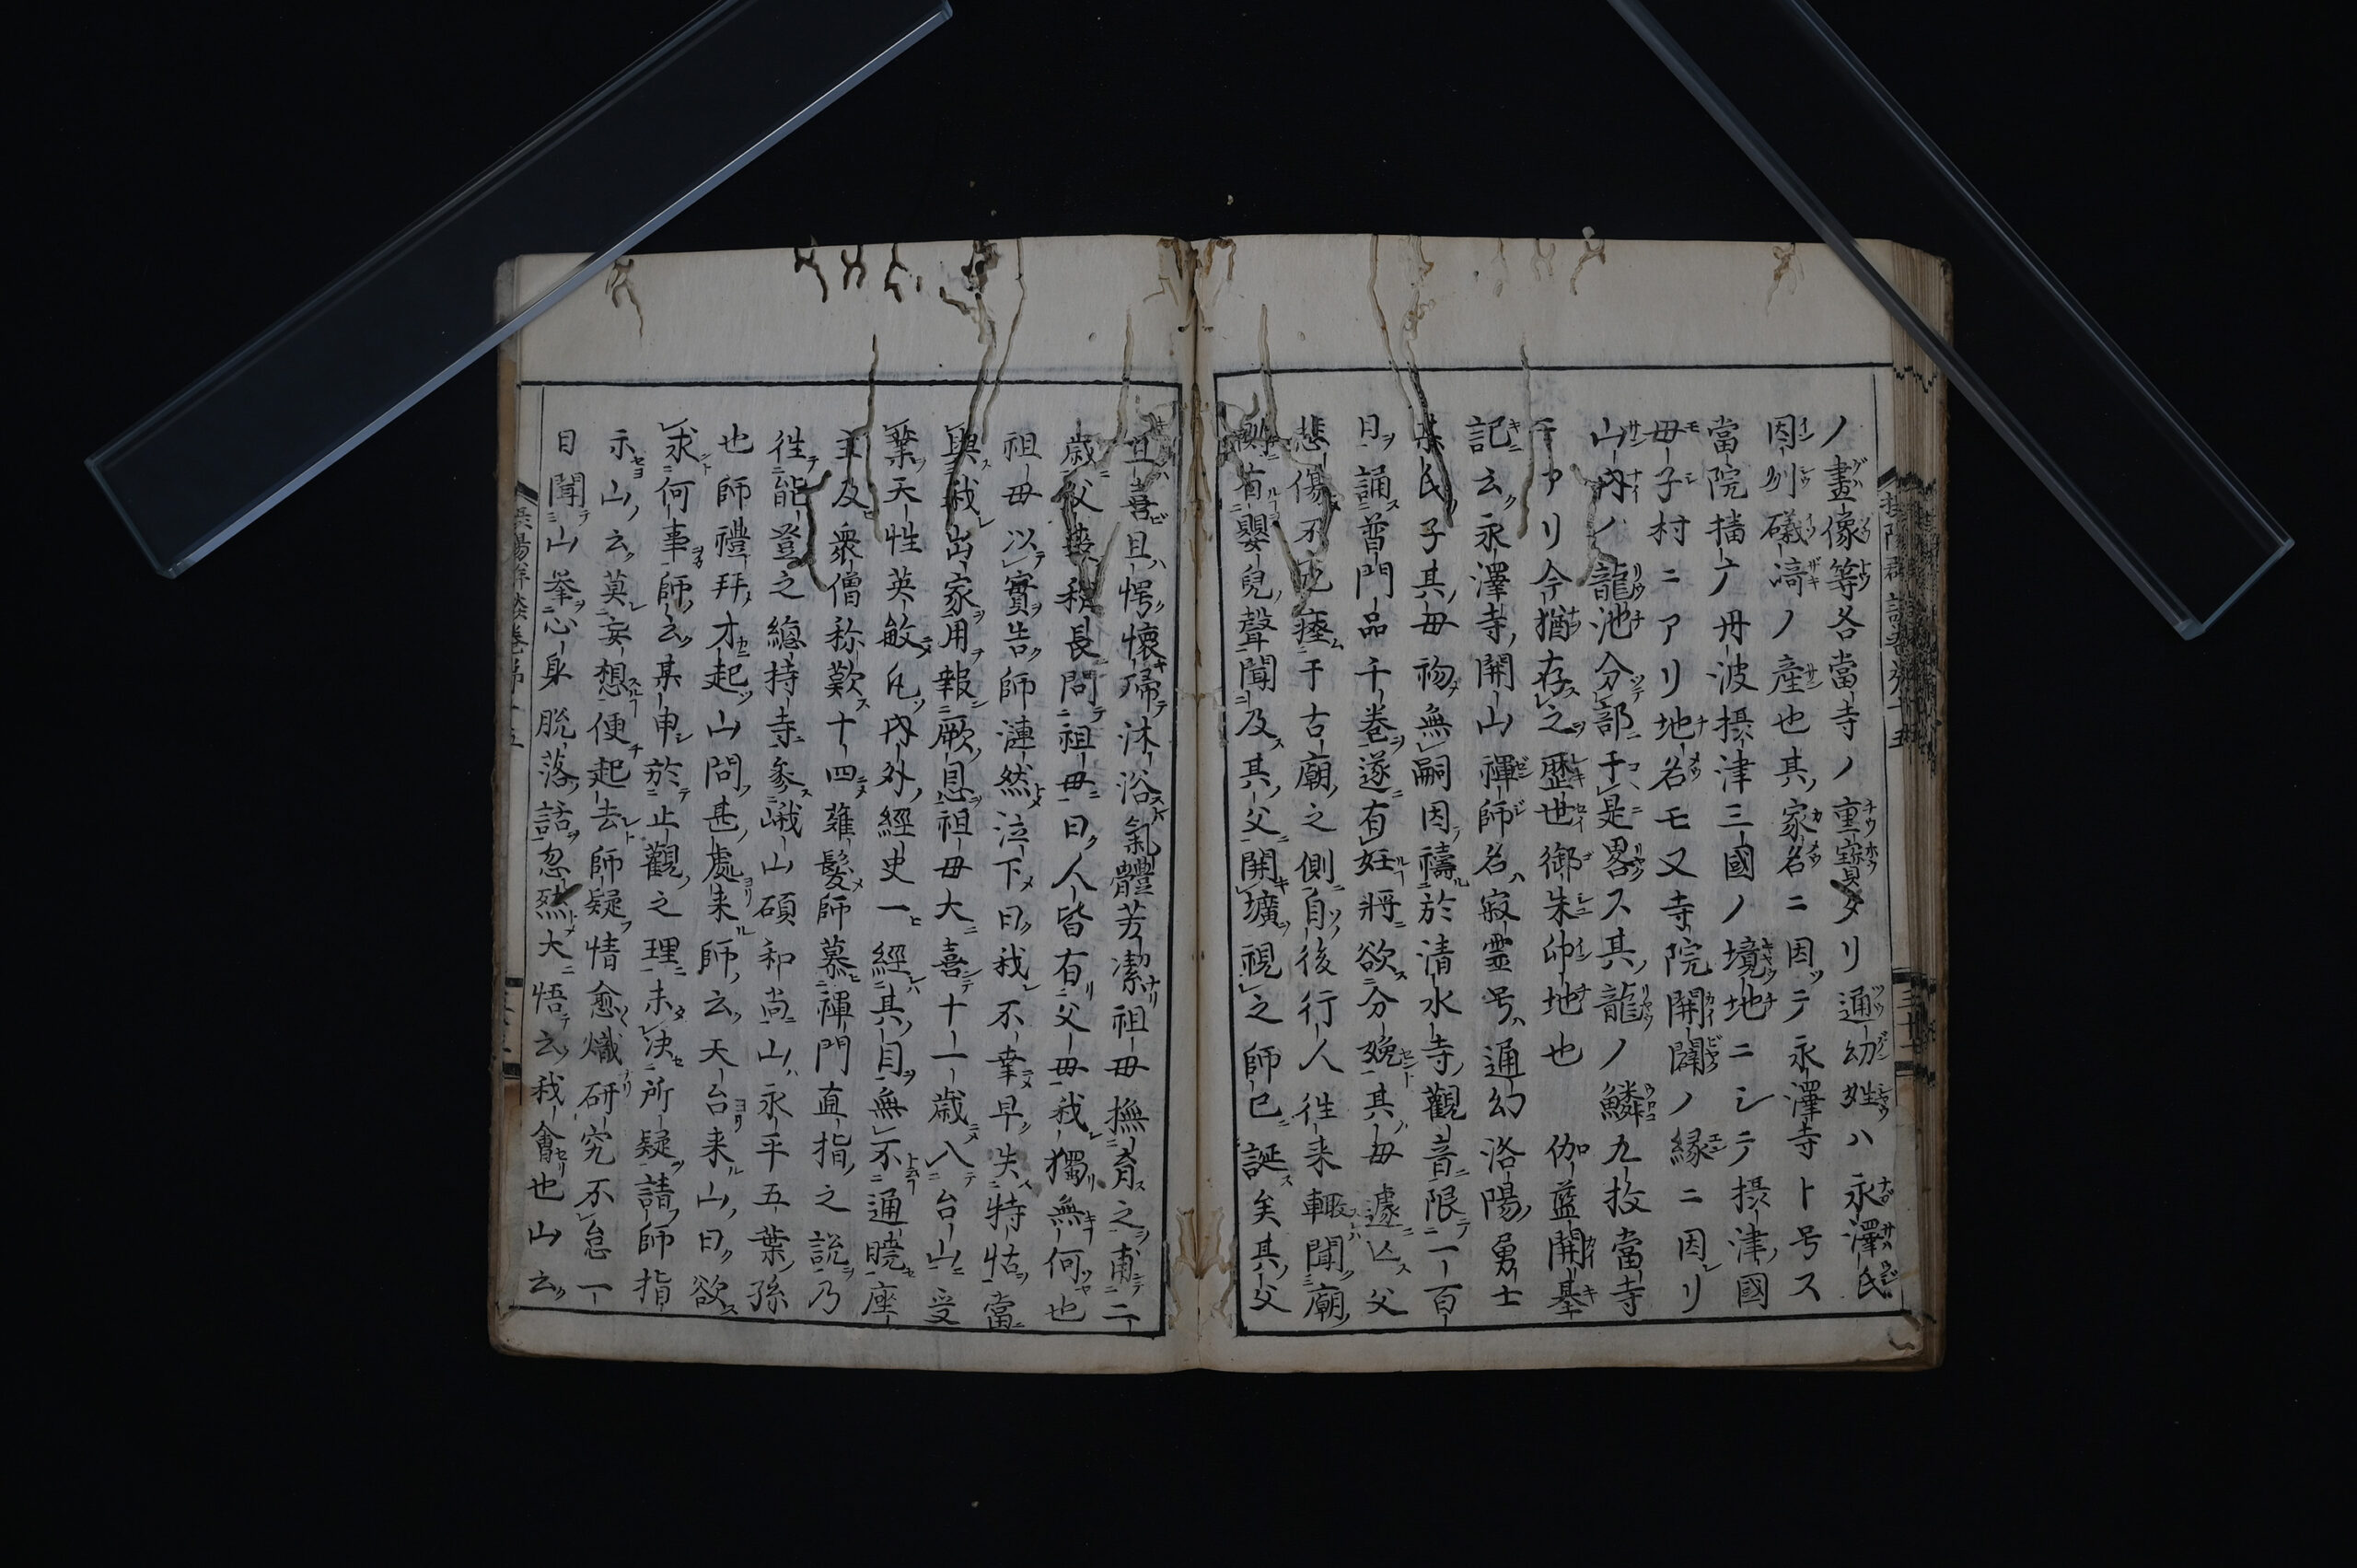 ノ畫像等各當寺ノ重寳タリ通幻姓ハ永澤氏
因別礒﨑ノ産也其家名ニ因テ永澤寺ト号ス
當院播丹波摂津三國ノ境地ニシテ摂津國
母子村ニアリ地名モ又寺院開闢ノ縁ニ因リ
山内ノ龍池分部于是畧ス其龍ノ鱗九枚當寺
ニアリ今猶存之歴世御朱印地也 伽藍開基
記云永澤寺開山禪師名寂霊号通幻洛陽勇士
某氏子其母初無嗣因禱於清水寺觀音限一百
日誦普門品千巻遂有妊将欲分娩其母遽亡父
悲傷不已瘞于古廟之側自後行人徃来輙聞廟
側有嬰兒聲聞及其父開壙視之師已誕矣其父
且喜且愕懷歸沐浴氣體芳潔祖母撫育之甫二
歳父喪稍長問祖母曰人皆有父母我獨無何也
祖母以實告師漣然泣下曰我不幸早失特怙當
與我出家用報厥恩祖母大喜十一歳入台山受
業天性英敏凡内外經史一經其目無不通曉座
主及衆僧称歎十四薙髪師慕禪門直指之説乃
徃能登之總持寺参峨山碩和尚山永平五葉孫
也師禮拜才起山問甚處来師云天台来山曰欲
求何事師云某甲於止觀之理未决所疑請師指
示山云莫妄想便起去師疑情愈熾研究不怠一
日聞山挙心身脱落話忽然大悟云我會也山云